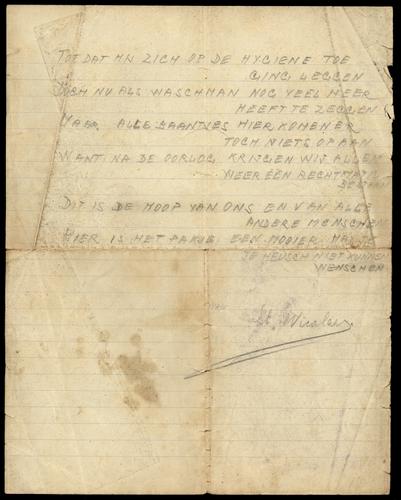 TOT DAT MN ZICH OP DE HYGIENE TOE
GING LEGGEN
DOCH NU ALS WASCHMAN NOG VEEL MEER
HEEFT TE ZEGGEN
MAAR ALLE BAANTJES HIER KOMEN ER
TOCH NIETS OP AAN
WANT NA DE OORLOG KRIJGEN WIJ ALLEN
WEER EEN RECHTMATIG
BESTAAN
DIT IS DE HOOP VAN ONS EN VAN ALLE
ANDERE MENSCHEN
HIER IS HET PAKJE EEN MOOIER HAD TE
JE HEUSCH NIET KUNNEN
WENSCHEN
St. Nicolaas